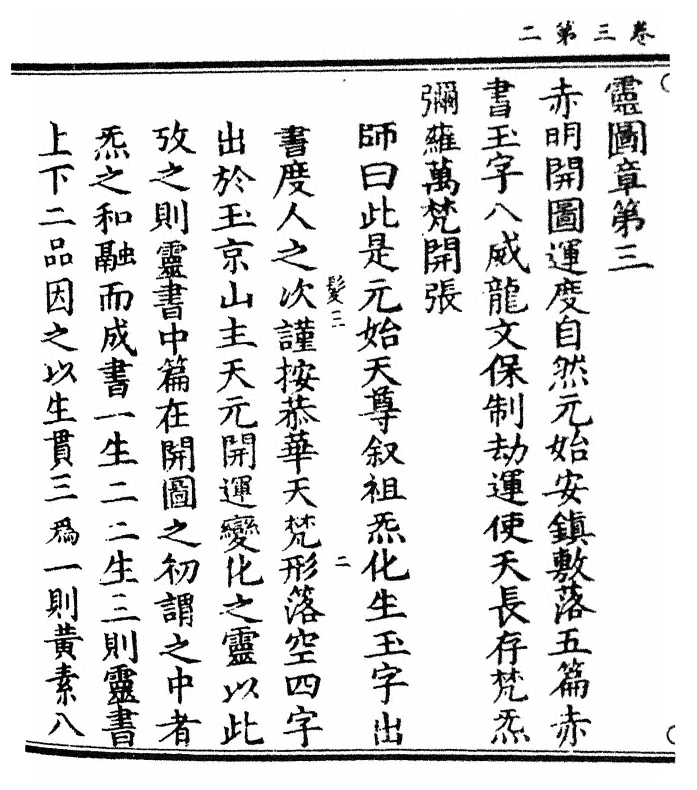 卷三第二
靈圖章第三
赤明開圖運度自然元始安鎮敷落五篇赤
書玉字八威龍文保制劫運使天長存梵炁
彌羅萬梵開張
師曰此是元始天尊叙祖炁化生玉字出
髮三
二
書度人之次謹按恭華天梵形落空四字
出於玉京山主天元開運變化之靈以此
攷之則靈書中篇在開圖之初謂之中者
炁之和融而成書一生二二生三則靈書
上下二品因之以生貫三爲一則黃素八